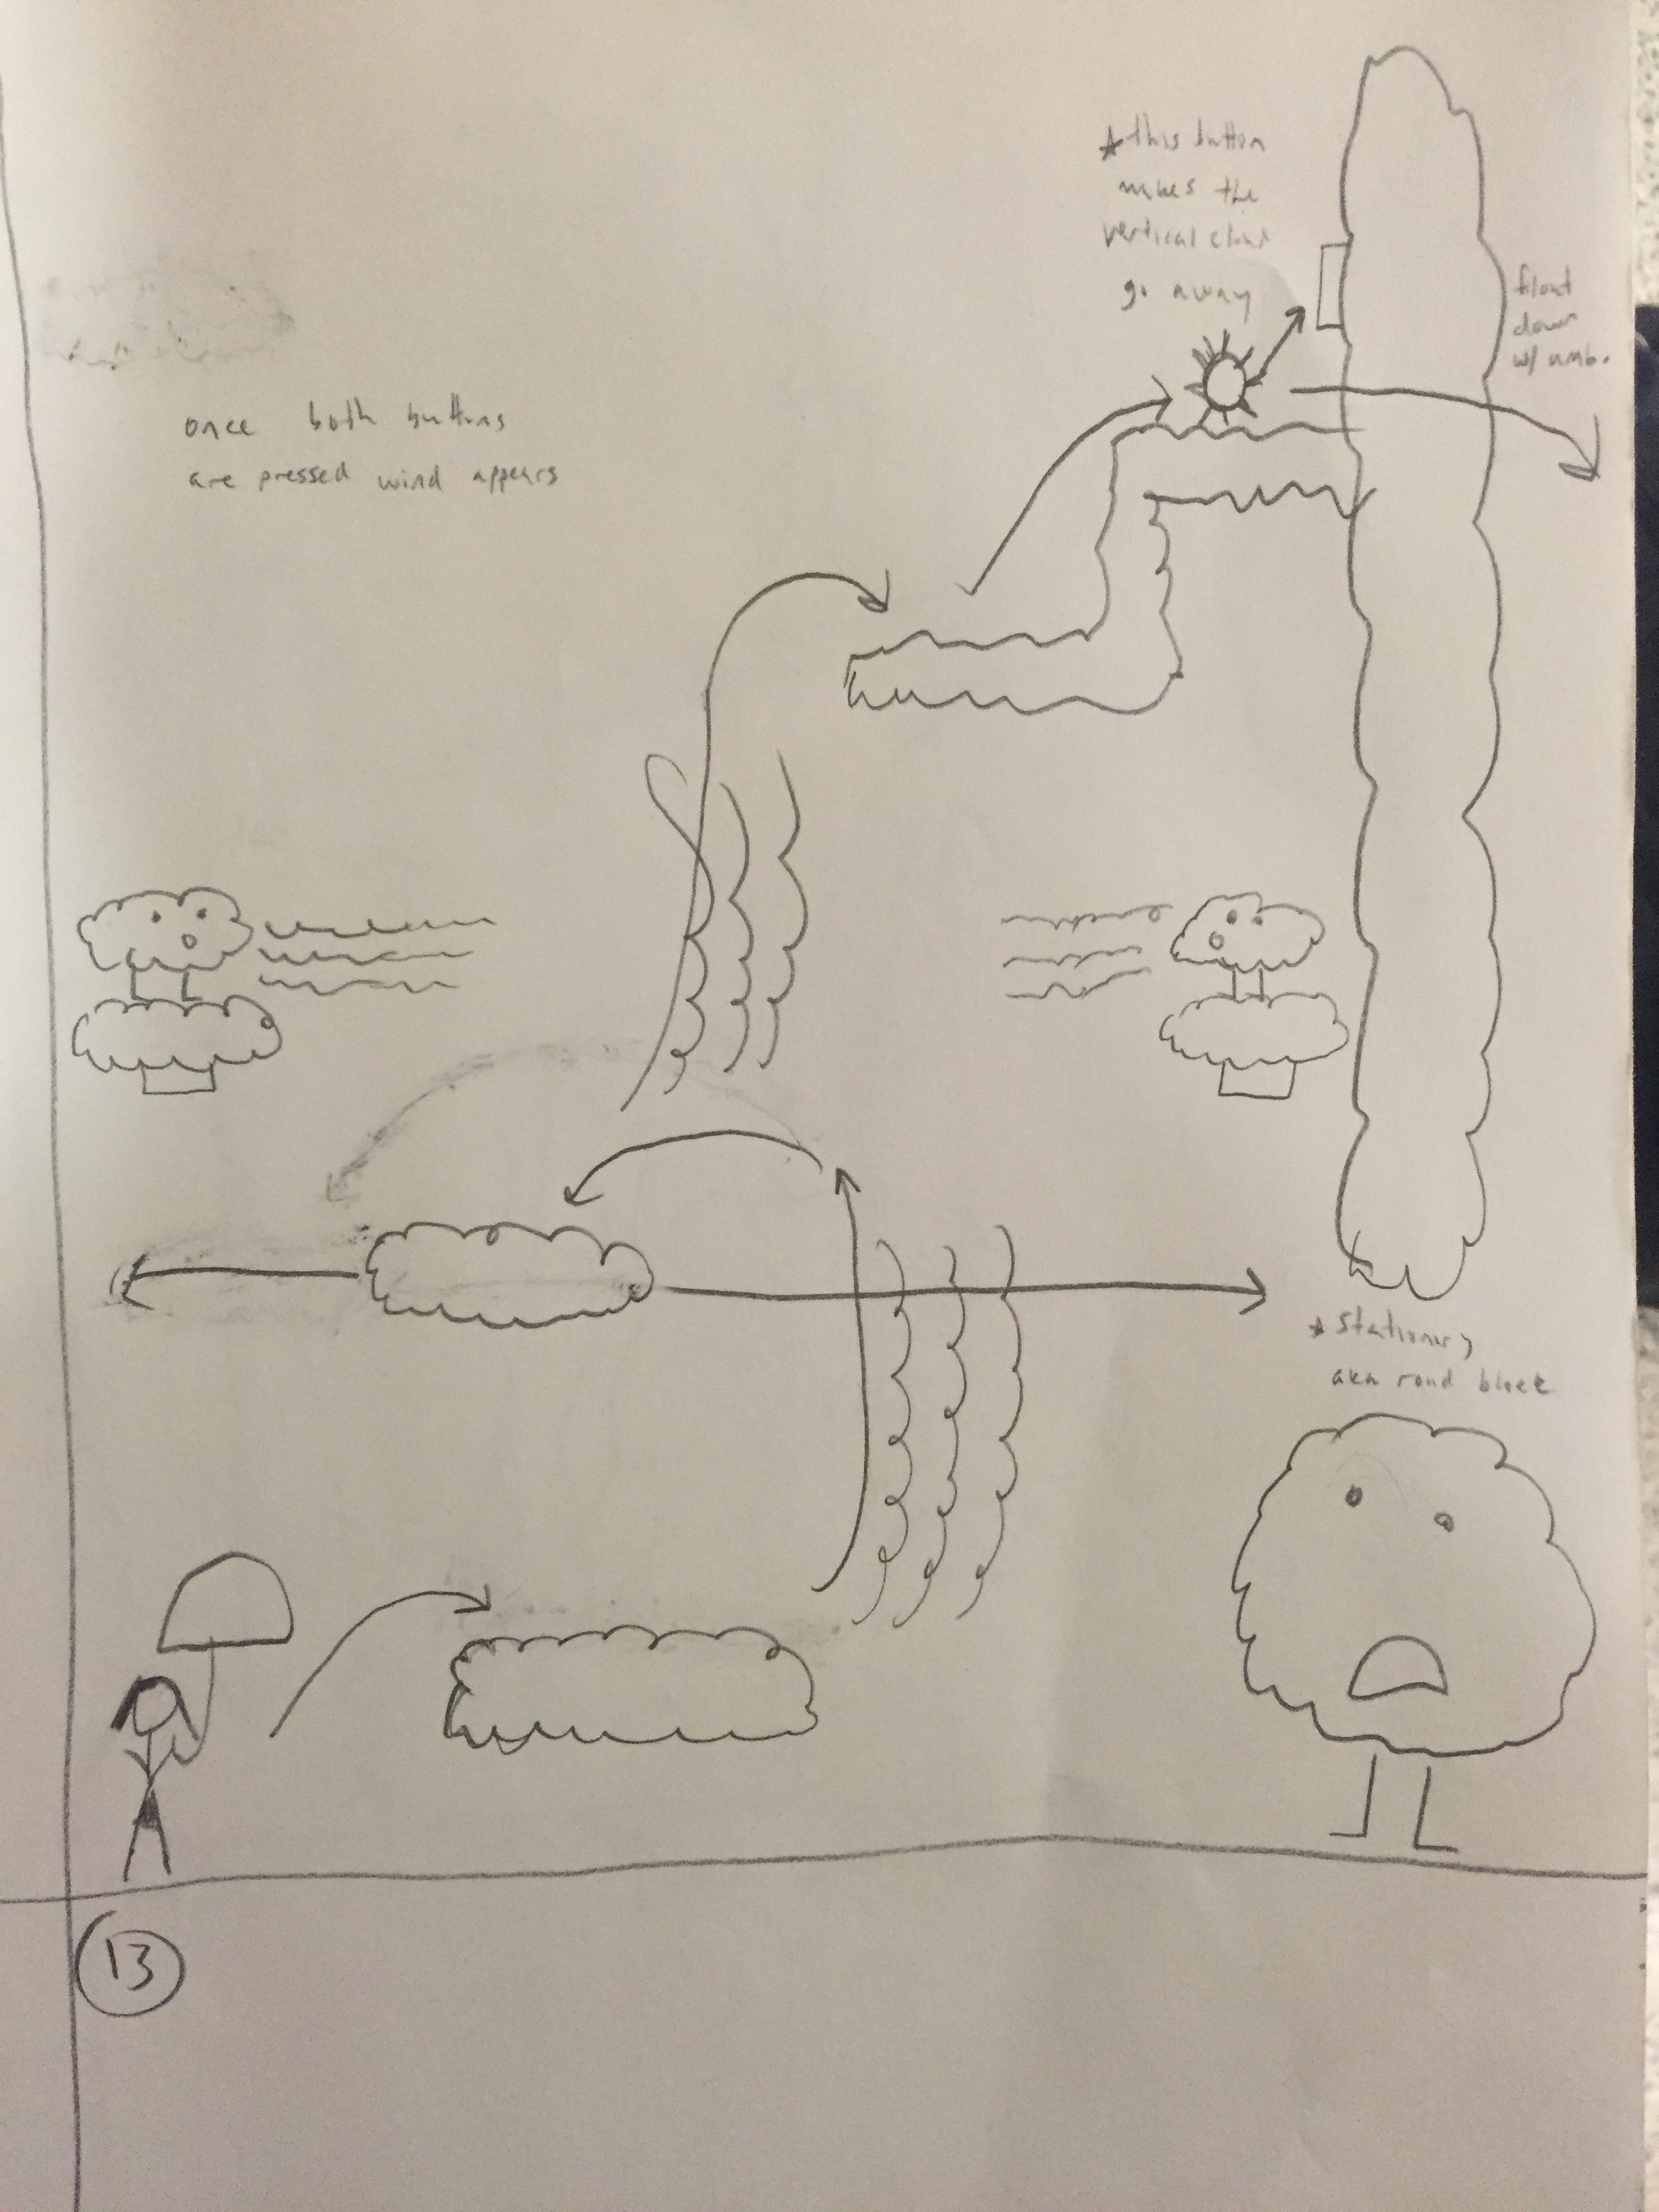 ★ this button
makes the
vertical cloud
go away
float
down
w/ umb.
once both buttons
are pressed wind appears
★ Stationary
aka road block
13